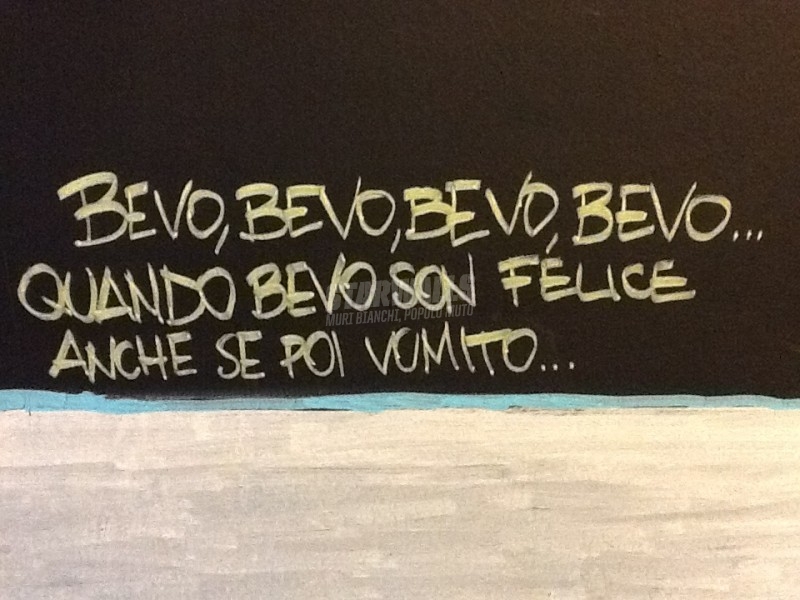 BEVO, BEVO, BEVO, BEVO...
QUANDO BEVO SON FELICE
MURI BIANCHI, POPOLO MUTO
ANCHE SE POI VOMITO...